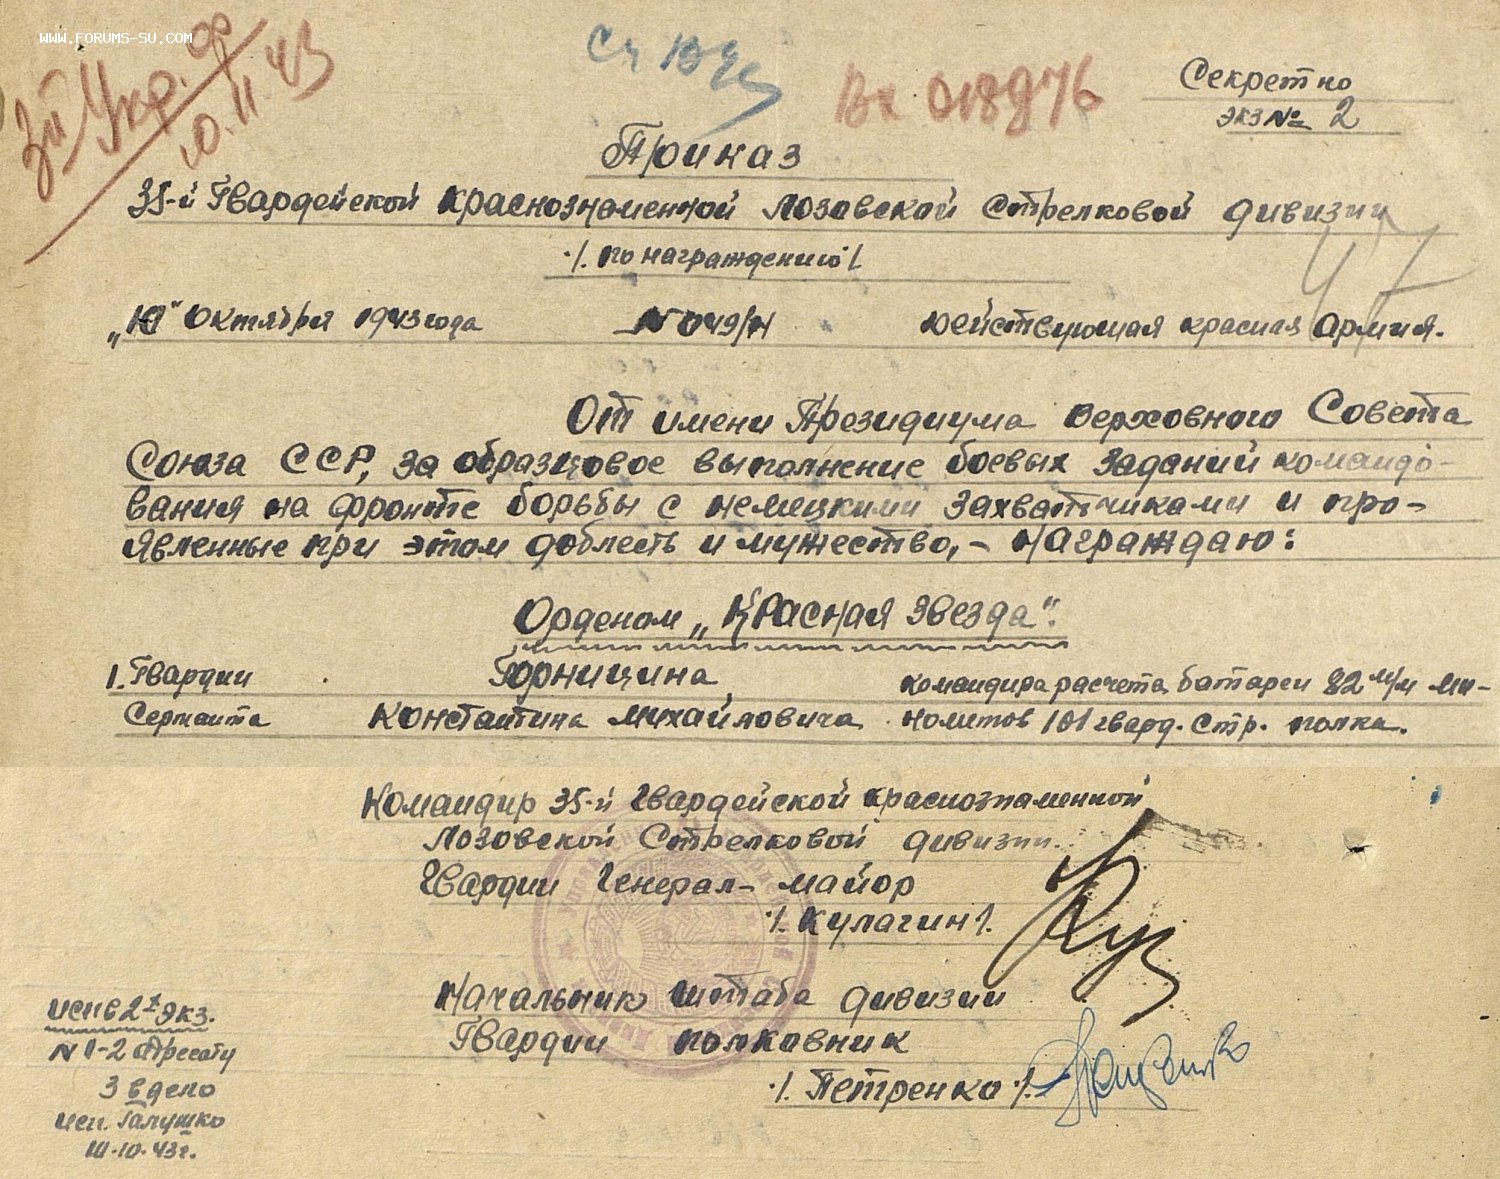 WWW.FORUMS-SU.COM
3й Укр. фр
10.11.43
Вх 018976
Секретно
экз № 2
Приказ
35-й Гвардейской краснознаменной Лозовской Стрелковой дивизии
./. по награждению /.
"10" Октября 1943 года № 049/н Действующая красная Армия.
От имени Президиума Верховного Совета
Союза ССР, за образцовое выполнение боевых заданий командо-
вания на фронте борьбы с немецкими захватчиками и про-
явленные при этом доблесть и мужество, - Награждаю:
Орденом „Красная Звезда":
1. Гвардии Горницина командира расчета батареи 82 м/м ми-
Сержанта Константина Михайловича номётов 101 гвард. Стр. полка.
Командир 35-й Гвардейской краснознаменной
Лозовской Стрелковой дивизии.
Гвардии Генерал-майор
./. Кулагин /.
Начальник штаба дивизии
Гвардии полковник
./. Петренко ./.
исп в 2х экз.
№ 1-2 адресату
3 в дело
исп. Галушко
10.43г.